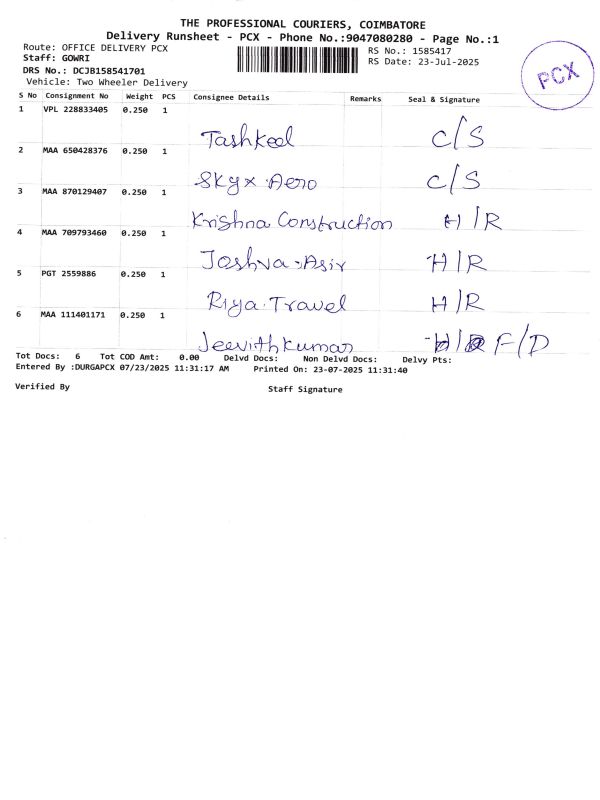 THE PROFESSIONAL COURIERS, COIMBATORE
Delivery Runsheet - PCX - Phone No.:9047080280 - Page No.:1
Route: OFFICE DELIVERY PCX
RS No.: 1585417
Staff: GOWRI
RS Date: 23-Jul-2025
DRS No.: DCJB158541701
Vehicle: Two Wheeler Delivery
PCX
S No Consignment No Weight PCS Consignee Details Remarks Seal & Signature
1 VPL 228833405 0.250 1
Tashkeel C/S
2 MAA 650428376 0.250 1
Skyx Aero C/S
3 MAA 870129407 0.250 1
Krishna Construction H/R
4 MAA 709793460 0.250 1
Joshva.Asir H/R
5 PGT 2559886 0.250 1
Riya.Travel H/R
6 MAA 111401171 0.250 1
Jeevithkumar F/D
Tot Docs: 6 Tot COD Amt: 0.00 Delvd Docs: Non Delvd Docs: Delvy Pts:
Entered By :DURGAPCX 07/23/2025 11:31:17 AM Printed On: 23-07-2025 11:31:40
Verified By Staff Signature